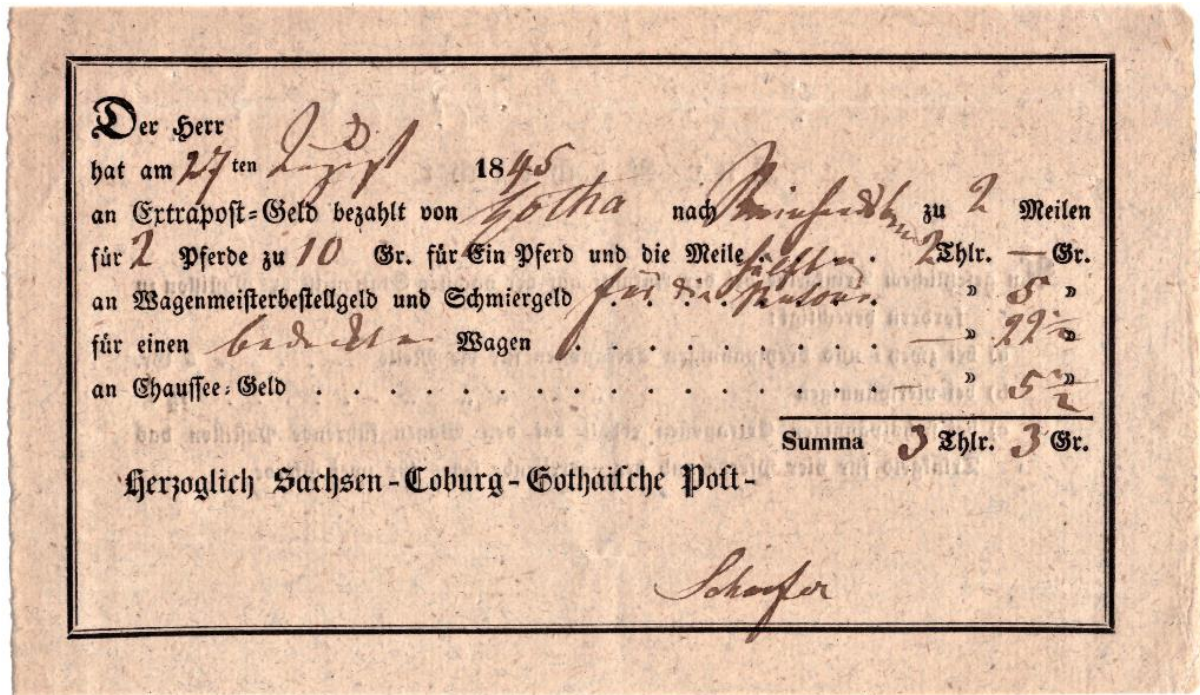 Der Herr
hat am 27 ten August 1845
an Extrapost-Geld bezahlt von Gotha nach Reinhardsbrunn zu 2 Meilen
für 2 Pferde zu 10 Gr. für Ein Pferd und die Meile . . . 2 Thlr. — Gr.
an Wagenmeisterbestellgeld und Schmiergeld für die . „ 5 „
für einen bedeckten Wagen . . . . . . . . . . — „ 22 ½ „
an Chaussee-Geld . . . . . . . . . . . . . . . . — „ 5 ½ „
Summa 3 Thlr. 3 Gr.
Herzoglich Sachsen-Coburg-Gothaische Post-
Schaefer